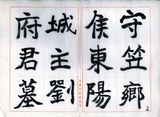 守笠鄉
侯東陽
城主劉
府君墓
2